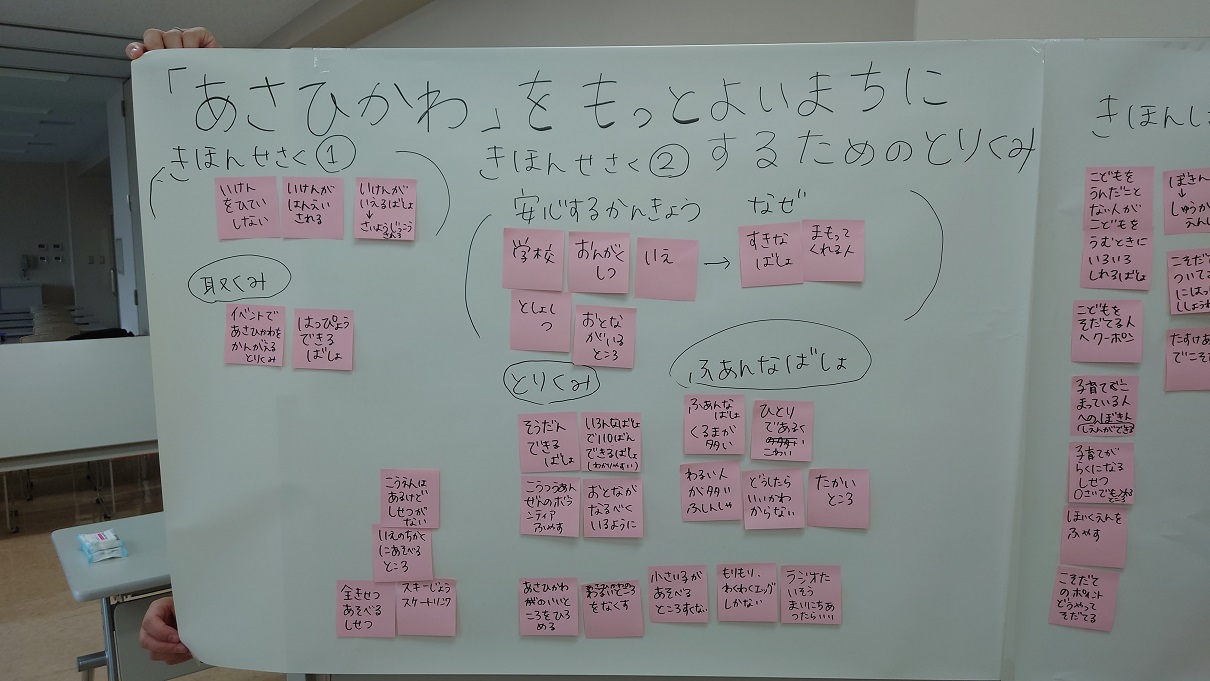 「あさひかわ」をもっとよいまちに
するためのとりくみ
きほんせさく①
いけん
をひてい
しない
いけんが
はんえい
される
いけんが
いえるばしょ
↓
さいようじっこう
される
取くみ
イベントで
あさひかわを
かんがえる
とりくみ
はっぴょう
できる
ばしょ
こうえんは
あるけど
しせつが
ない
いえのちかく
にあそべる
ところ
全きせつ
あそべる
しせつ
スキーじょう
スケートリンク
きほんせさく②
安心するかんきょう
学校
おんがく
しつ
いえ
としょし
つ
おとな
がいる
ところ
→
なぜ
すきな
ばしょ
まもって
くれる人
とりくみ
そうだん
できる
ばしょ
いろんなばしょ
で110ばん
できるばしょ
(わかりやすい)
こうつうあん
ぜんのボラ
ンティア
ふやす
おとなが
なるべく
いるように
ふあんなばしょ
ふあんな
ばしょ
くるまが
多い
ひとり
であるく
こわい
わるい人
が多い
ふしんしゃ
どうしたら
いいかわ
からない
たかい
ところ
あさひかわ
がのいいと
ころをひろ
める
わるいところ
をなくす
小さい子が
あそべる
ところすくない
もりもり、
わくわくエッグ
しかない
ラジオた
いそう
まいにちあ
ったらいい
こどもを
うんだこと
ない人が
こどもを
うむときに
いろいろ
しれるばしょ
こどもを
そだてる人
へクーポン
子育てでこ
まっている人
への、ぼきん
しえんができる
子育てが
らくになる
しせつ
0さいでもつれる
ところ
ほいくえんを
ふやす
こそだて
のポイント
どうやって
そだてる
ぼきん
↓